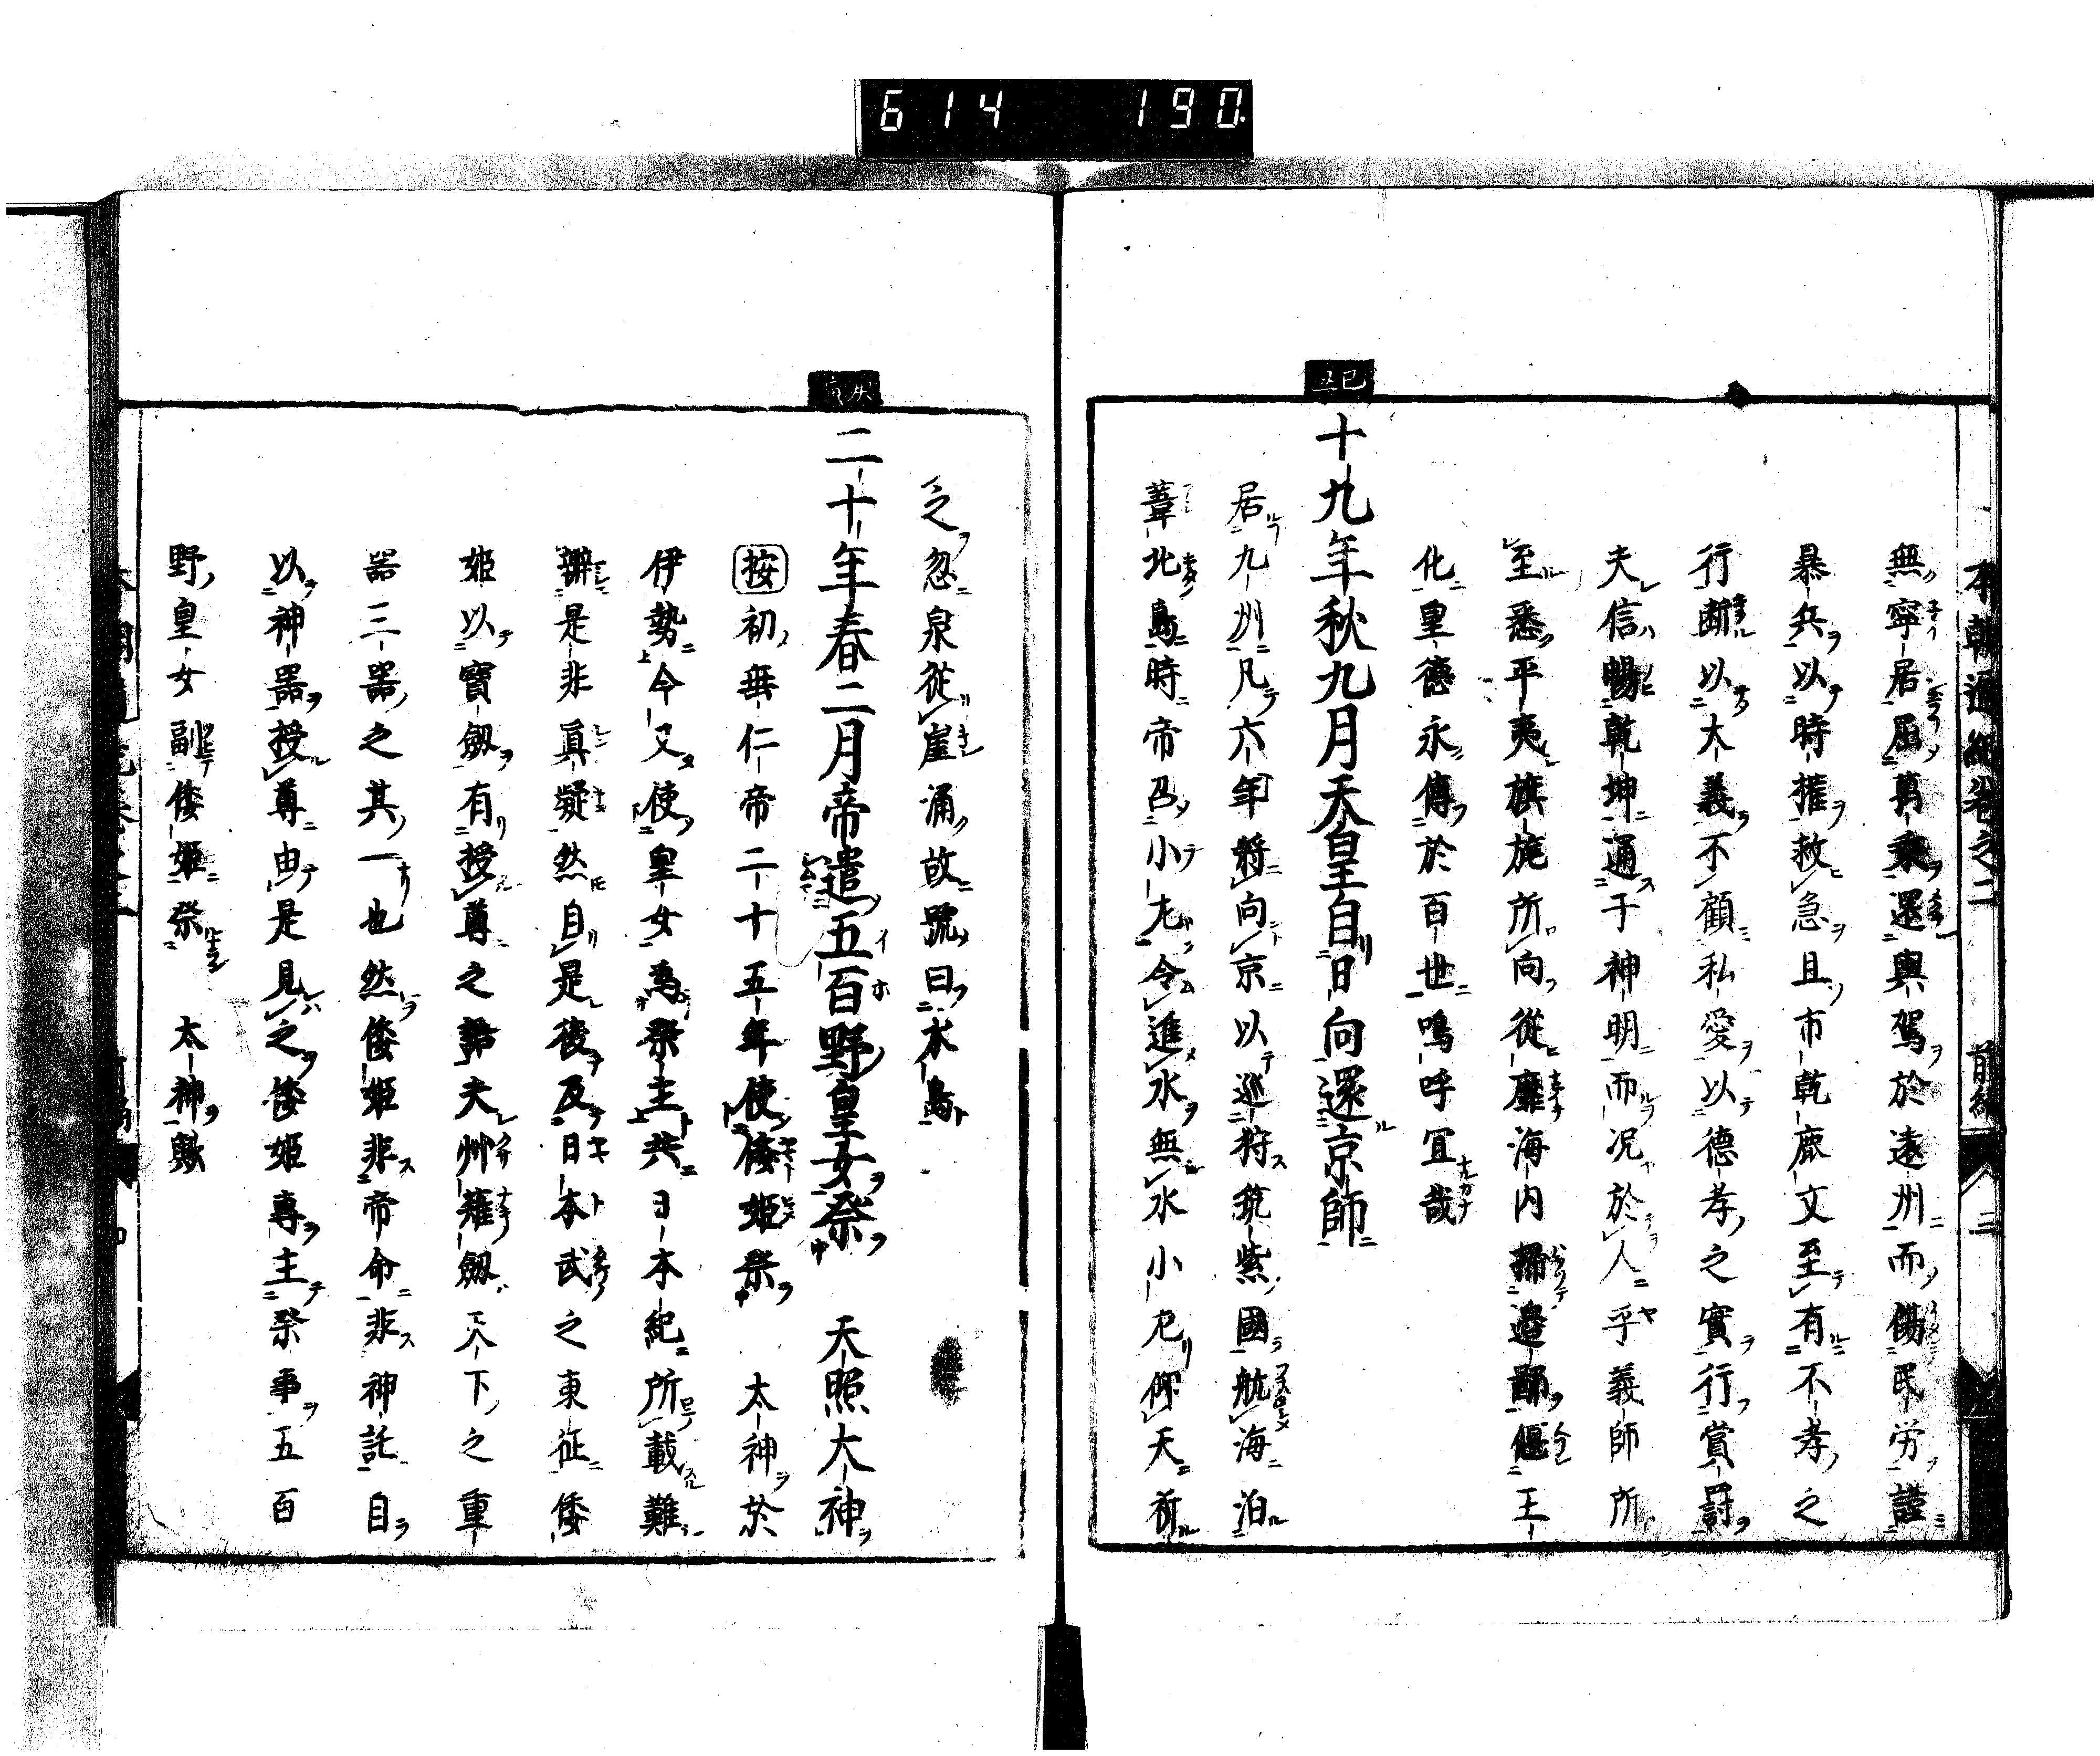 614 190
本朝通紀卷之二 前編 三
無寧居屈萬乘還輿駕於遠州而傷民勞謹
暴兵以時權救急且市乾鹿文至有不孝之
行斷以大義不顧私愛以德孝之實行賞罰
夫信暢乾坤通于神明而况於人乎義師所
至悉平夷旗旄所向從靡海内掃邉鄙偃王
化皇德永傳於百世嗚呼冝哉
己丑
十九年秋九月天皇自日向還京師
居九州凡六年將向京以巡狩筑紫國航海泊
葦北島時帝召小左令進水無水小左仰天祈
之忽泉從崖涌故號曰水島
庚寅
二十年春二月帝遣五百野皇女祭 天照大神
按初垂仁帝二十五年使倭姫祭 太神於
伊勢今又使皇女為祭主共日本紀所載難
辨是非眞疑然自是後及日本武之東征倭
姫以寶劔有授尊之夫艸薙劔天下之重
噐三噐之其一也然倭姫非帝命非神託自
以神噐授尊由是見之倭姫專主祭事五百
野皇女副倭姫祭 太神歟